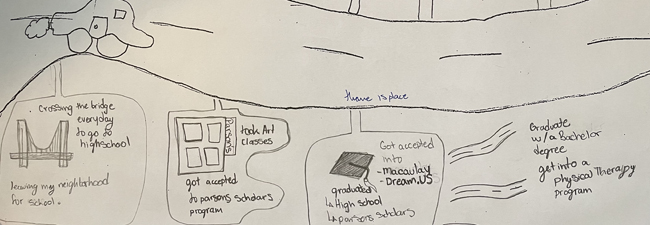 theme is place
. Crossing the bridge
everyday
to go to
highschool
leaving my neighborhood
for school.
Parsons
took Art
classes
got accepted
to parsons scholars
program
Got accepted
into
- Macaulay
- Dream.US
graduated
↳ High school
↳ parsons scholars
Graduate
w/ a Bachelor
degree
get into a
physical Therapy
program